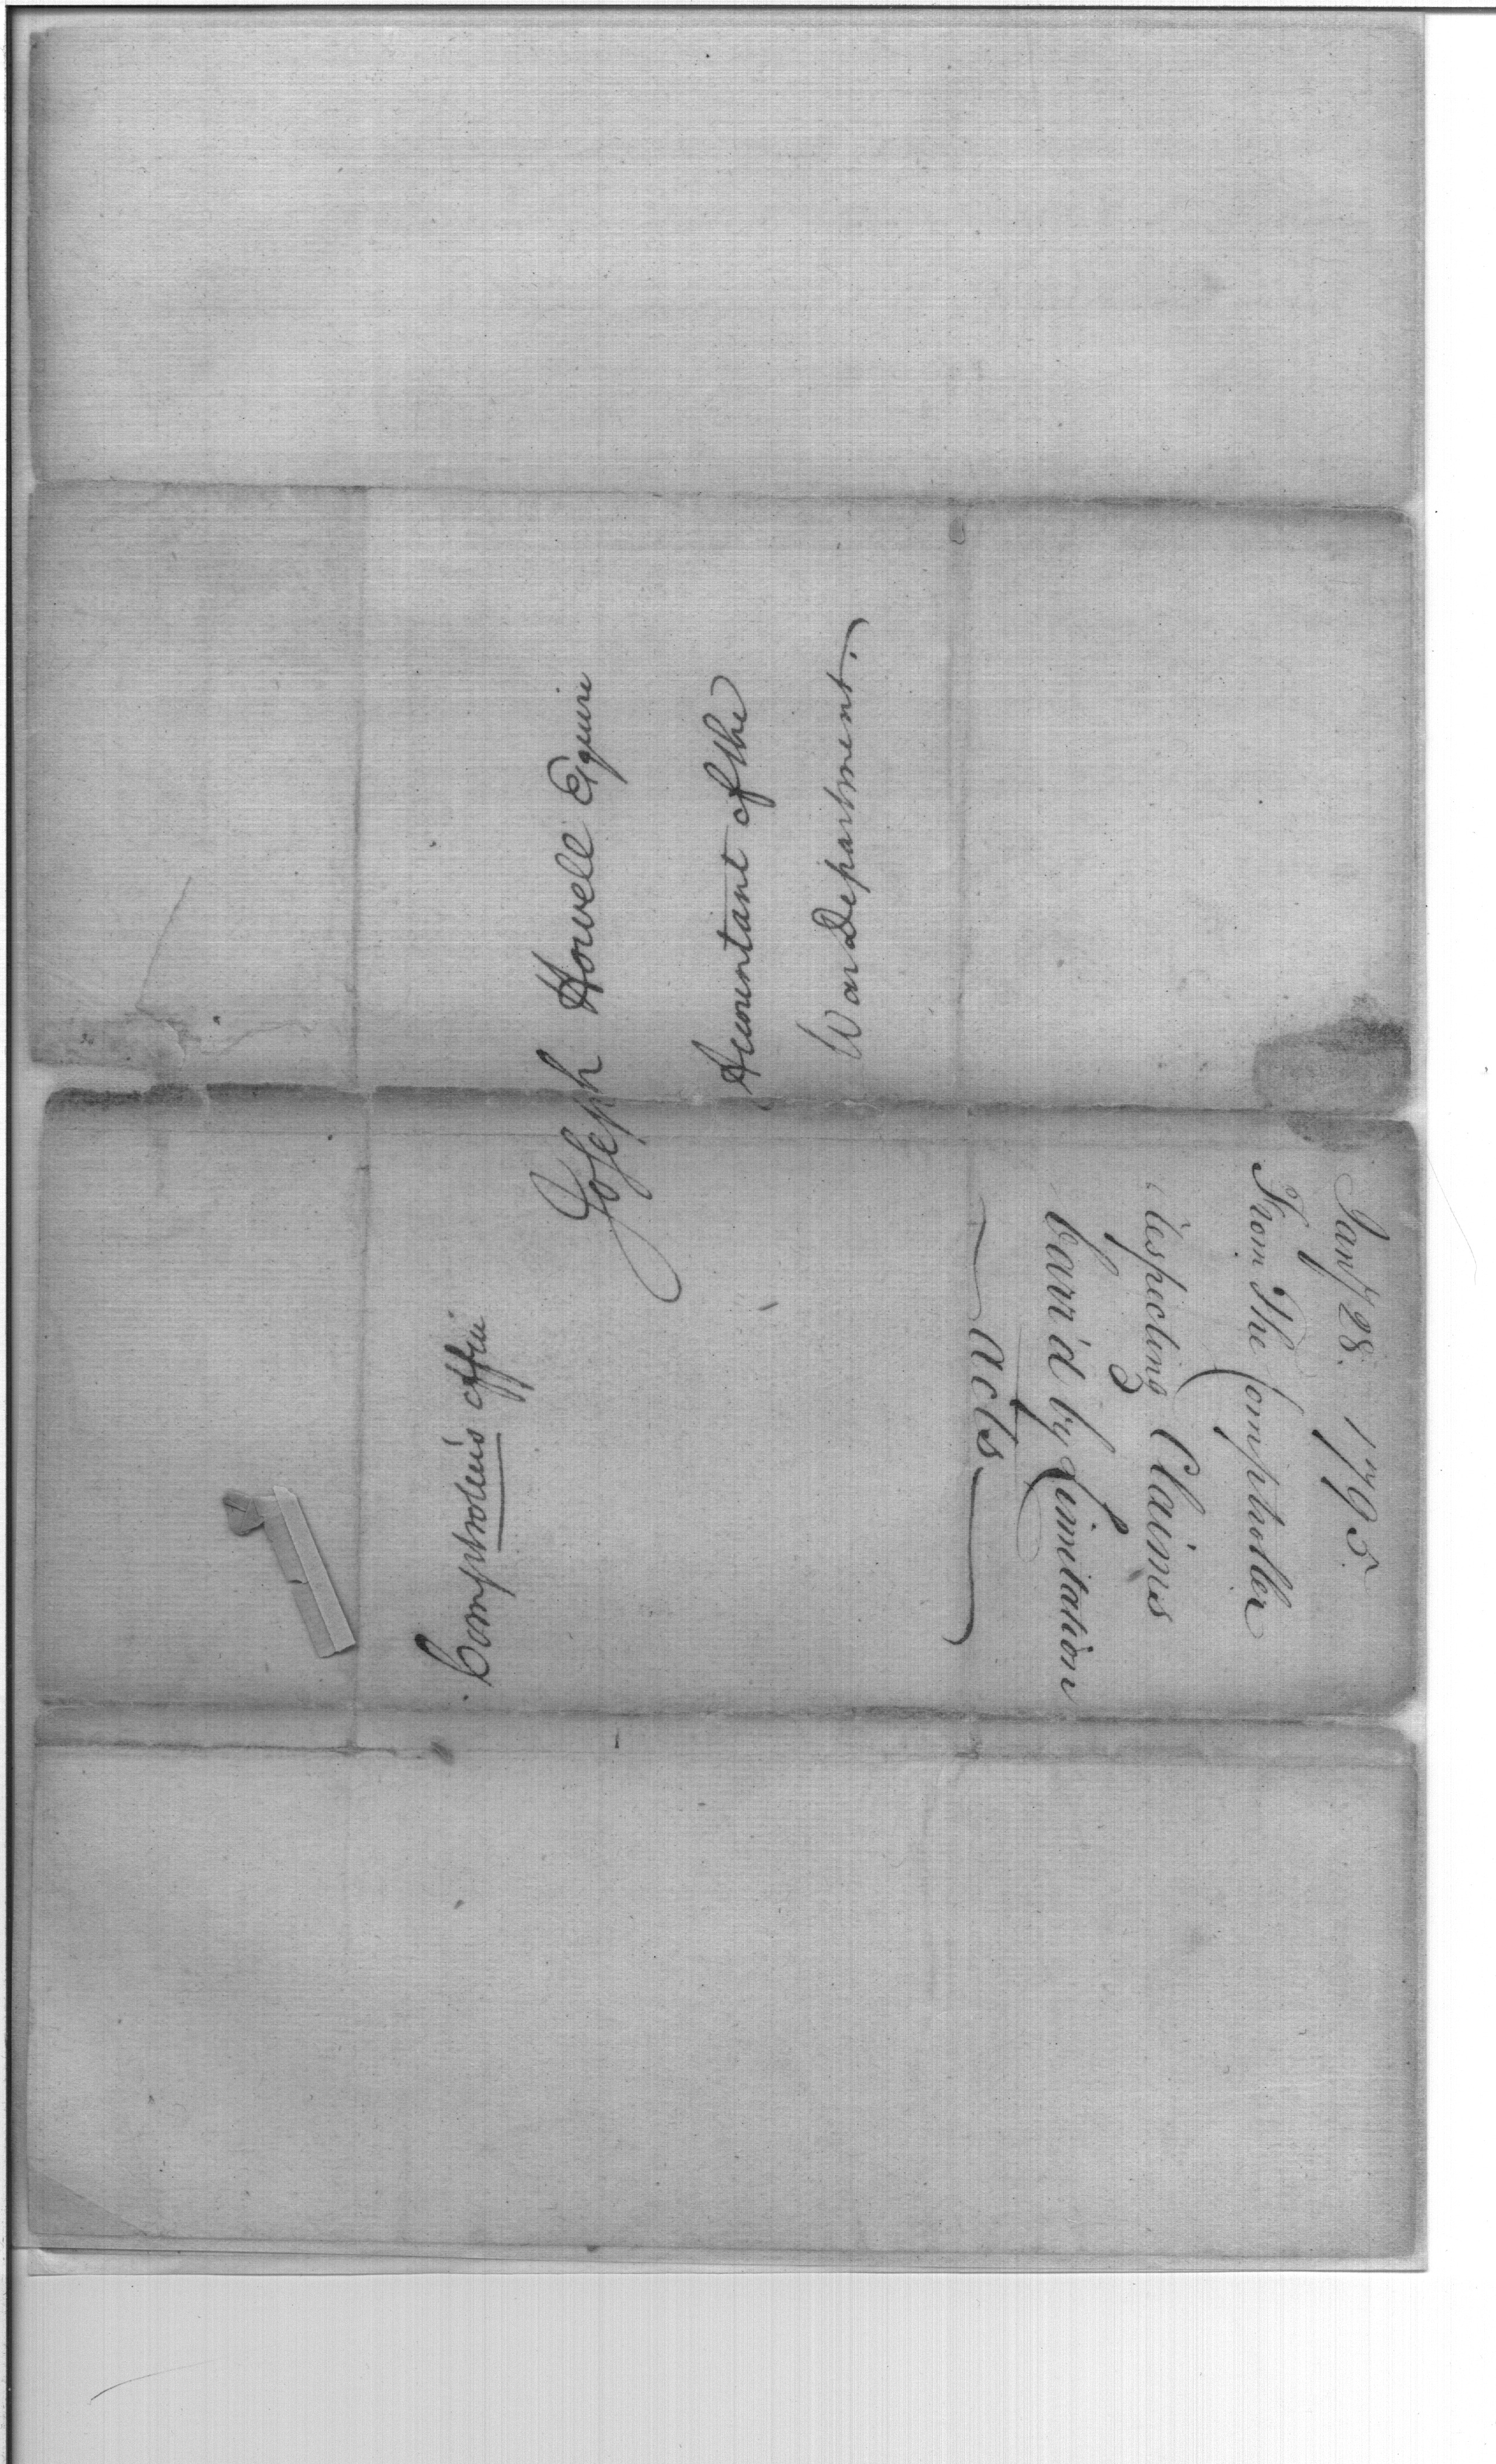 Joseph Howell Esquire
Accountant of the
War Department.
Comptrollers office
Jany 28. 1795
From The Comptroller
respecting Claims
barr'd by Limitation
acts